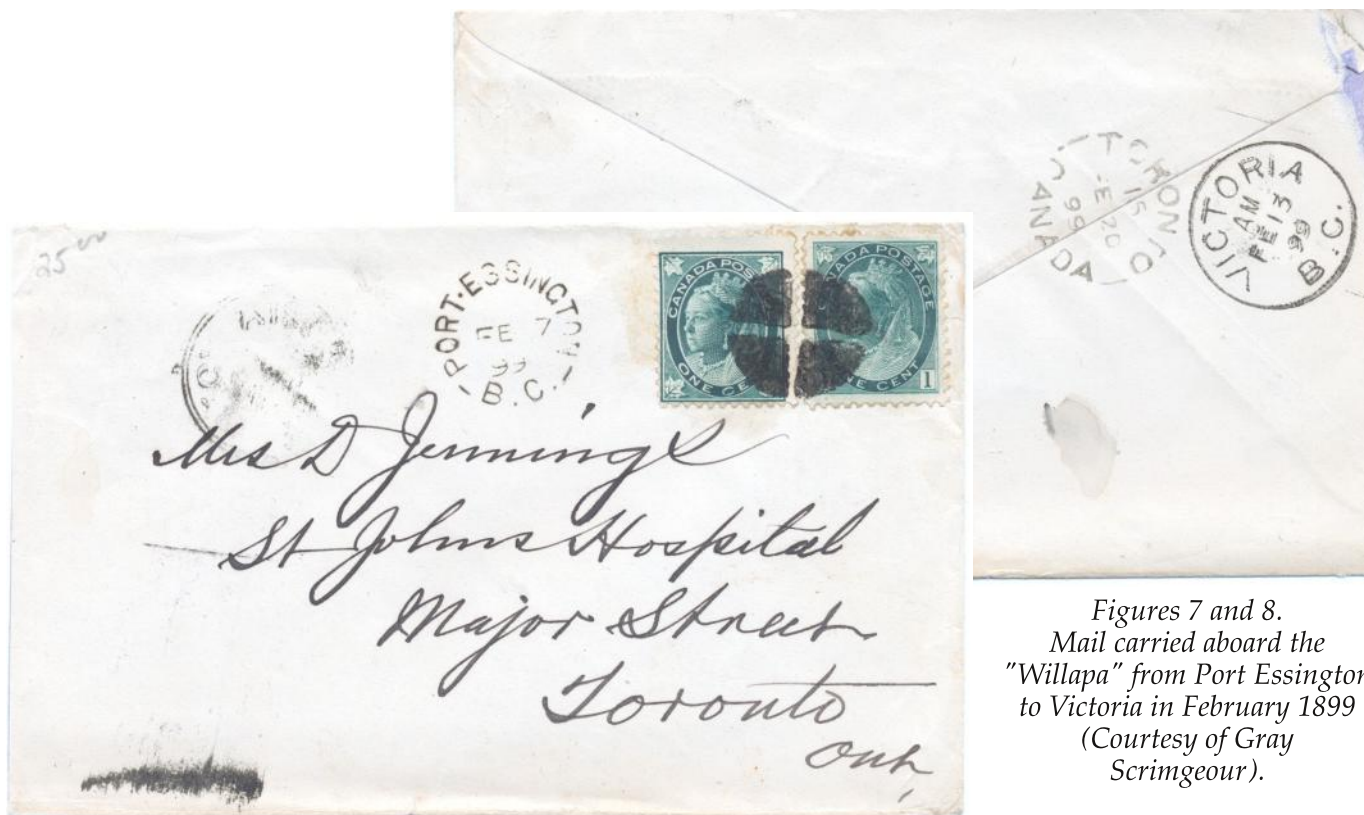 TORONTO
15
FE 20
99
CANADA
VICTORIA
AM
FE 13
99
B.C.
25
PORT·ESSINGTON
FE 7
99
B.C.
CANADA POS
ONE CE
NADA POSTAGE
NE CENT
1
Mrs D Jennings
St Johns Hospital
Major Street
Toronto
Ont,
Figures 7 and 8.
Mail carried aboard the
"Willapa" from Port Essington
to Victoria in February 1899
(Courtesy of Gray
Scrimgeour).